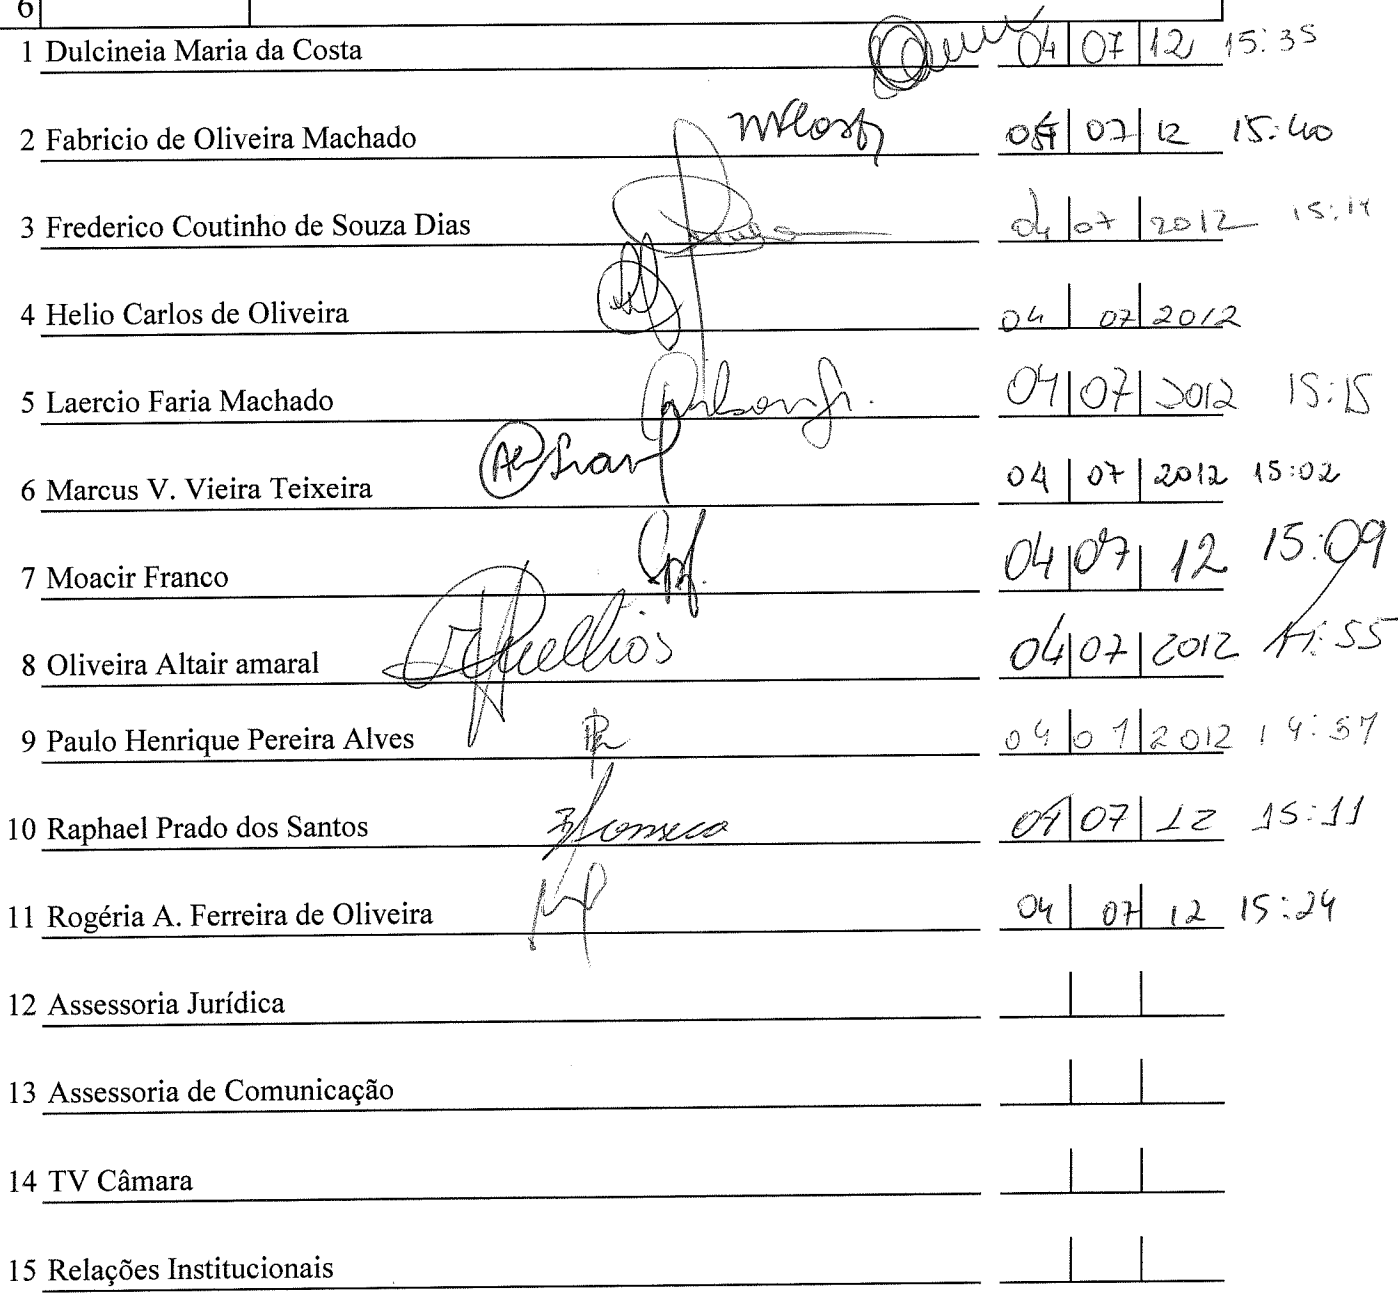 6
1 Dulcineia Maria da Costa 04 07 12 15:35
2 Fabricio de Oliveira Machado 07 12 15:40
3 Frederico Coutinho de Souza Dias 04 07 2012 15:14
4 Helio Carlos de Oliveira 04 07 2012
5 Laercio Faria Machado 04 07 2012 15:15
6 Marcus V. Vieira Teixeira 04 07 2012 15:02
7 Moacir Franco 04 07 12 15:09
8 Oliveira Altair amaral 04 07 2012 :55
9 Paulo Henrique Pereira Alves 04 07 2012 14:57
10 Raphael Prado dos Santos 04 07 12 15:11
11 Rogéria A. Ferreira de Oliveira 04 07 12 15:24
12 Assessoria Jurídica
13 Assessoria de Comunicação
14 TV Câmara
15 Relações Institucionais